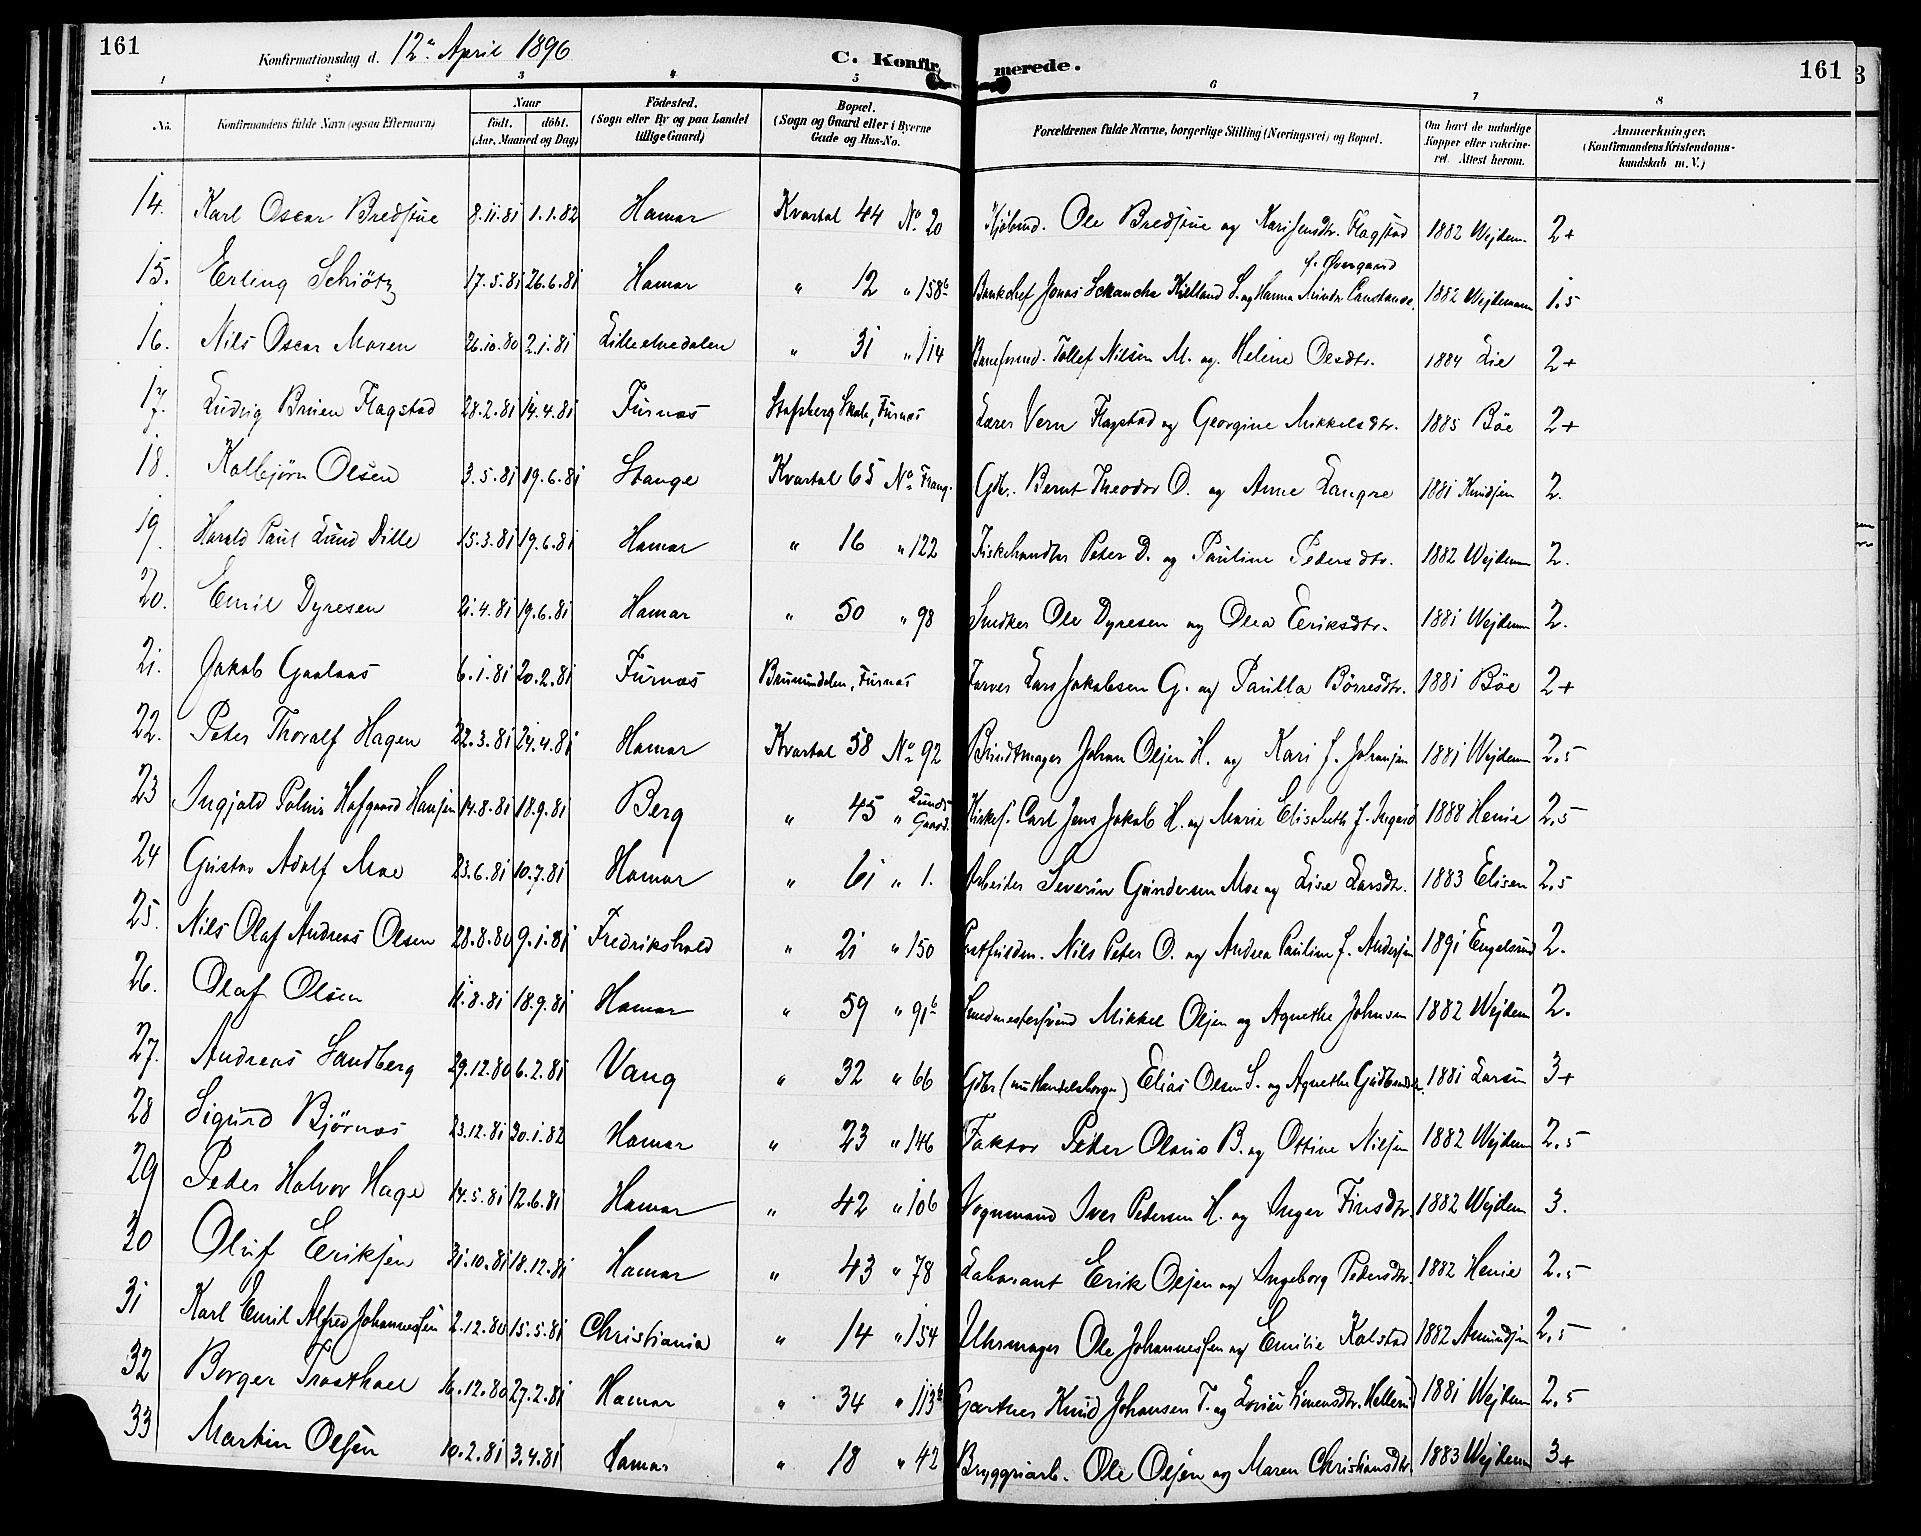 161 Konfirmationsdag d. 12te April 1896 C. Konfirmerede. 161
1 2 3 4 5 6 7 8
No. Konfirmandens fulde Navn (ogsaa Efternavn) Naar født. døbt. (Aar, Maaned og Dag) Födested. (Sogn eller By og paa Landet tillige Gaard) Bopæl. (Sogn og Gaard eller i Byerne Gade og Hus-No. Forældrenes fulde Navne, borgerlige Stilling (Næringsvei) og Bopæl. Om havt de naturlige Kopper eller vaccineret. Attest herom. Anmærkninger. (Konfirmandens Kristendomskundskab m. V.)
14. Karl Oscar Bredstue 8.11.81 1.1.82 Hamar Kvartal 44 No. 20 Kjøbmd. Ole Bredstue og Kari Jensdtr. Flagstad 1882 Wejdem. 2+
15. Erling Schiötz 17.5.81 26.6.81 Hamar " 12 " 158b Bankchef Jonas Schanche Kielland S. og Hanna Constance f. Øvergaard 1882 Wejdemann 1.5
16. Nils Oscar Moren 26.10.80 2.1.81 Lilleelvedalen " 31 " 114 Banefmd. Tollef Nilsen M. og Heline Olsdtr. 1884 Lie 2+
17. Ludvig Bruen Flagstad 28.2.81 14.4.81 Furnæs Stafsberg Skole, Furnæs Lærer Vern Flagstad og Georgine Mikkelsdtr. 1885 Böe 2+
18. Kolbjörn Olsen 3.5.81 19.6.81 Stange Kvartal 65 No. Gdbr. Bernt Theodor O. og Anne 1881 Knudsen 2.
19. Harald Paul Lund Dille 15.3.81 19.6.81 Hamar " 16 " 122 Fiskehandler Peter D. og Pauline Pedersdtr. 1882 Wejdem 2.
20. Emil Dyresen 21.4.81 19.6.81 Hamar " 50 " 98 Snedker Ole Dyresen og Olea Eriksdtr. 1881 Wejdem 2.
21. Jakob Gaalaas 6.1.81 20.2.81 Furnæs Brumundalen, Furnæs Farver Lars Jakobsen G. og Paulla Börresdtr. 1881 Böe 2+
22. Peter Thoralf Hagen 22.3.81 24.4.81 Hamar Kvartal 58 No. 92 Bundtmager Johan Olsen H. og Kari f. Johansen 1881 Wejdem 2.5
23 Ingjald Palmis Hofgaard Hansen 14.8.81 18.9.81 Berg " 45 " Lunds Gaard. Kirkes. Carl Jens Jakob H. og Marie Elisabeth f. 1888 Henie 2.5
24 Gustav Adolf Moe 23.6.81 10.7.81 Hamar " 61 " 1. Arbeider Severin Gundersen Moe og Lise Larsdtr. 1883 Elisen 2.5
25. Nils Olaf Andreas Olsen 28.8.80 9.1.81 Fredrikshald " 21 " 150 Postfuldm. Nils Peter O. og Andrea Pauline f. Andersen 1891 Engelsrud 2.
26. Olaf Olsen 11.8.81 18.9.81 Hamar " 59 " 91b Smedmestersvend Mikkel Olsen og Agnethe Johnsen 1882 Wejdem 2.
27. Andreas Sandberg 29.12.80 6.2.81 Vang " 32 " 66 Gdbr (nu Handelsborger) Elias Olsen S. og Agnethe Gudbrandsdtr. 1881 Larsen 3+
28 Sigurd Bjørnæs 23.12.81 30.1.82 Hamar " 23 " 146 Faktor Peder Olaus B. og Ottine Nilsen 1882 Wejdem 2.5
29 Peder Halvor Hage 14.5.81 12.6.81 Hamar " 42 " 106 Vognmand Iver Pedersen H. og Inger Finsdtr. 1882 Wejdem 3.
30 Oluf Eriksen 31.10.81 18.12.81 Hamar " 43 " 78 Laborant Erik Olsen og Ingeborg Pedersdtr. 1882 Henie 2.5
31 Karl Emil Alfred Johannessen 2.12.80 15.5.81 Christiania " 14 " 154 Uhrmager Ole Johannessen og Emilie Kolstad 1882 Amundsen 2.5
32 Borger Trosthoel 16.12.80 27.2.81 Hamar " 34 " 113b Gartner Knud Johansen T. og Lovise Simensdtr. Hellerud 1881 Wejdem 2.5
33 Martin Olsen 10.2.81 3.4.81 Hamar " 18 " 42 Bryggeriarb. Ole Olsen og Maren Christiansdtr 1883 Wejdem 3+